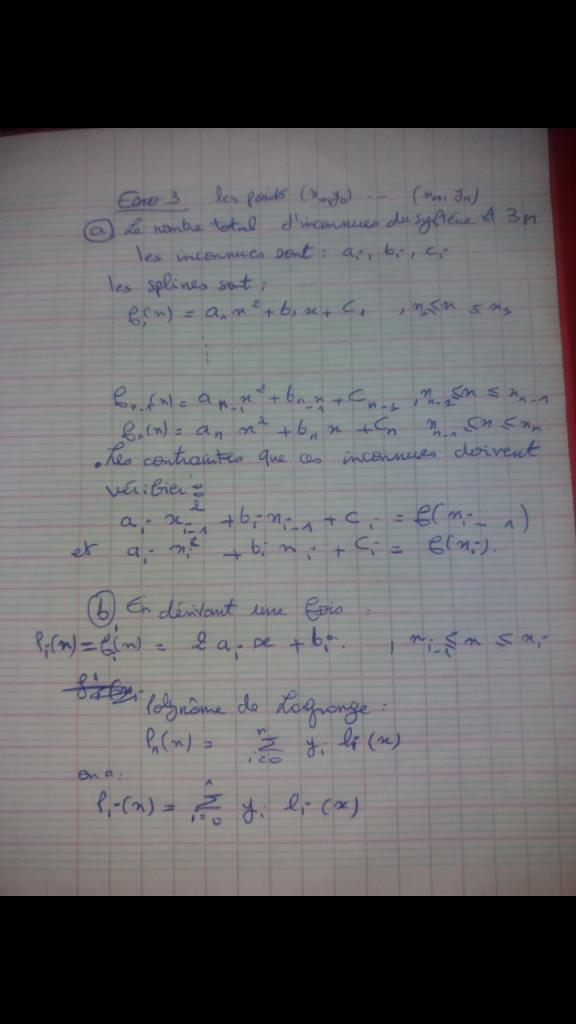 Exo 3 les points (x₀,y₀) ... (xₙ, yₙ)
ⓐ Le nombre total d'inconnues du système 3n
les inconnues sont : aᵢ, bᵢ, cᵢ
les splines sont :
f₁(x) = a₁ x² + b₁ x + c₁ , x₀ ≤ x ≤ x₁
⋮
fₙ₋₁(x) = aₙ₋₁ x² + bₙ₋₁ x + cₙ₋₁ , xₙ₋₂ ≤ x ≤ xₙ₋₁
fₙ(x) = aₙ x² + bₙ x + cₙ xₙ₋₁ ≤ x ≤ xₙ.
. Les contraintes que ces inconnues doivent
vérifier :
aᵢ xᵢ₋₁² + bᵢ xᵢ₋₁ + cᵢ = f(xᵢ₋₁)
et aᵢ xᵢ² + bᵢ xᵢ + cᵢ = f(xᵢ).
ⓑ En dérivant une fois :
Pᵢ(x) = fᵢ'(x) = 2 aᵢ x + bᵢ. , xᵢ₋₁ ≤ x ≤ xᵢ
Polynôme de Lagrange :
Pₙ(x) = Σⁿᵢ₌₀ yᵢ lᵢ(x)
on a :
Pᵢ(x) = Σ¹ᵢ₌₀ yᵢ lᵢ(x)